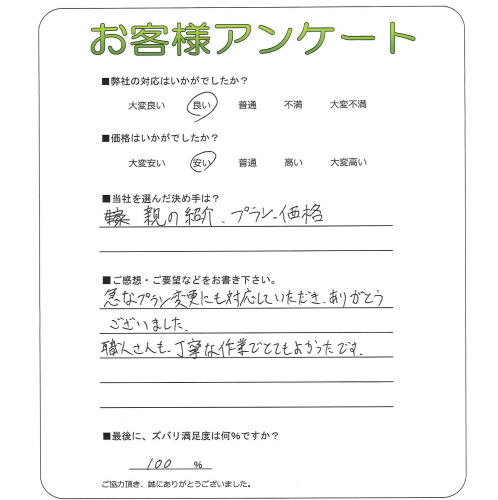 お客様アンケート
■弊社の対応はいかがでしたか？
大変良い 良い 普通 不満 大変不満
■価格はいかがでしたか？
大変安い 安い 普通 高い 大変高い
■当社を選んだ決め手は？
親の紹介、プラン、価格
■ご感想・ご要望などをお書き下さい。
急なプラン変更にも対応していただき、ありがとう
ございました。
職人さんも、丁寧な作業でとてもよかったです。
■最後に、ズバリ満足度は何％ですか？
100 %
ご協力頂き、誠にありがとうございました。